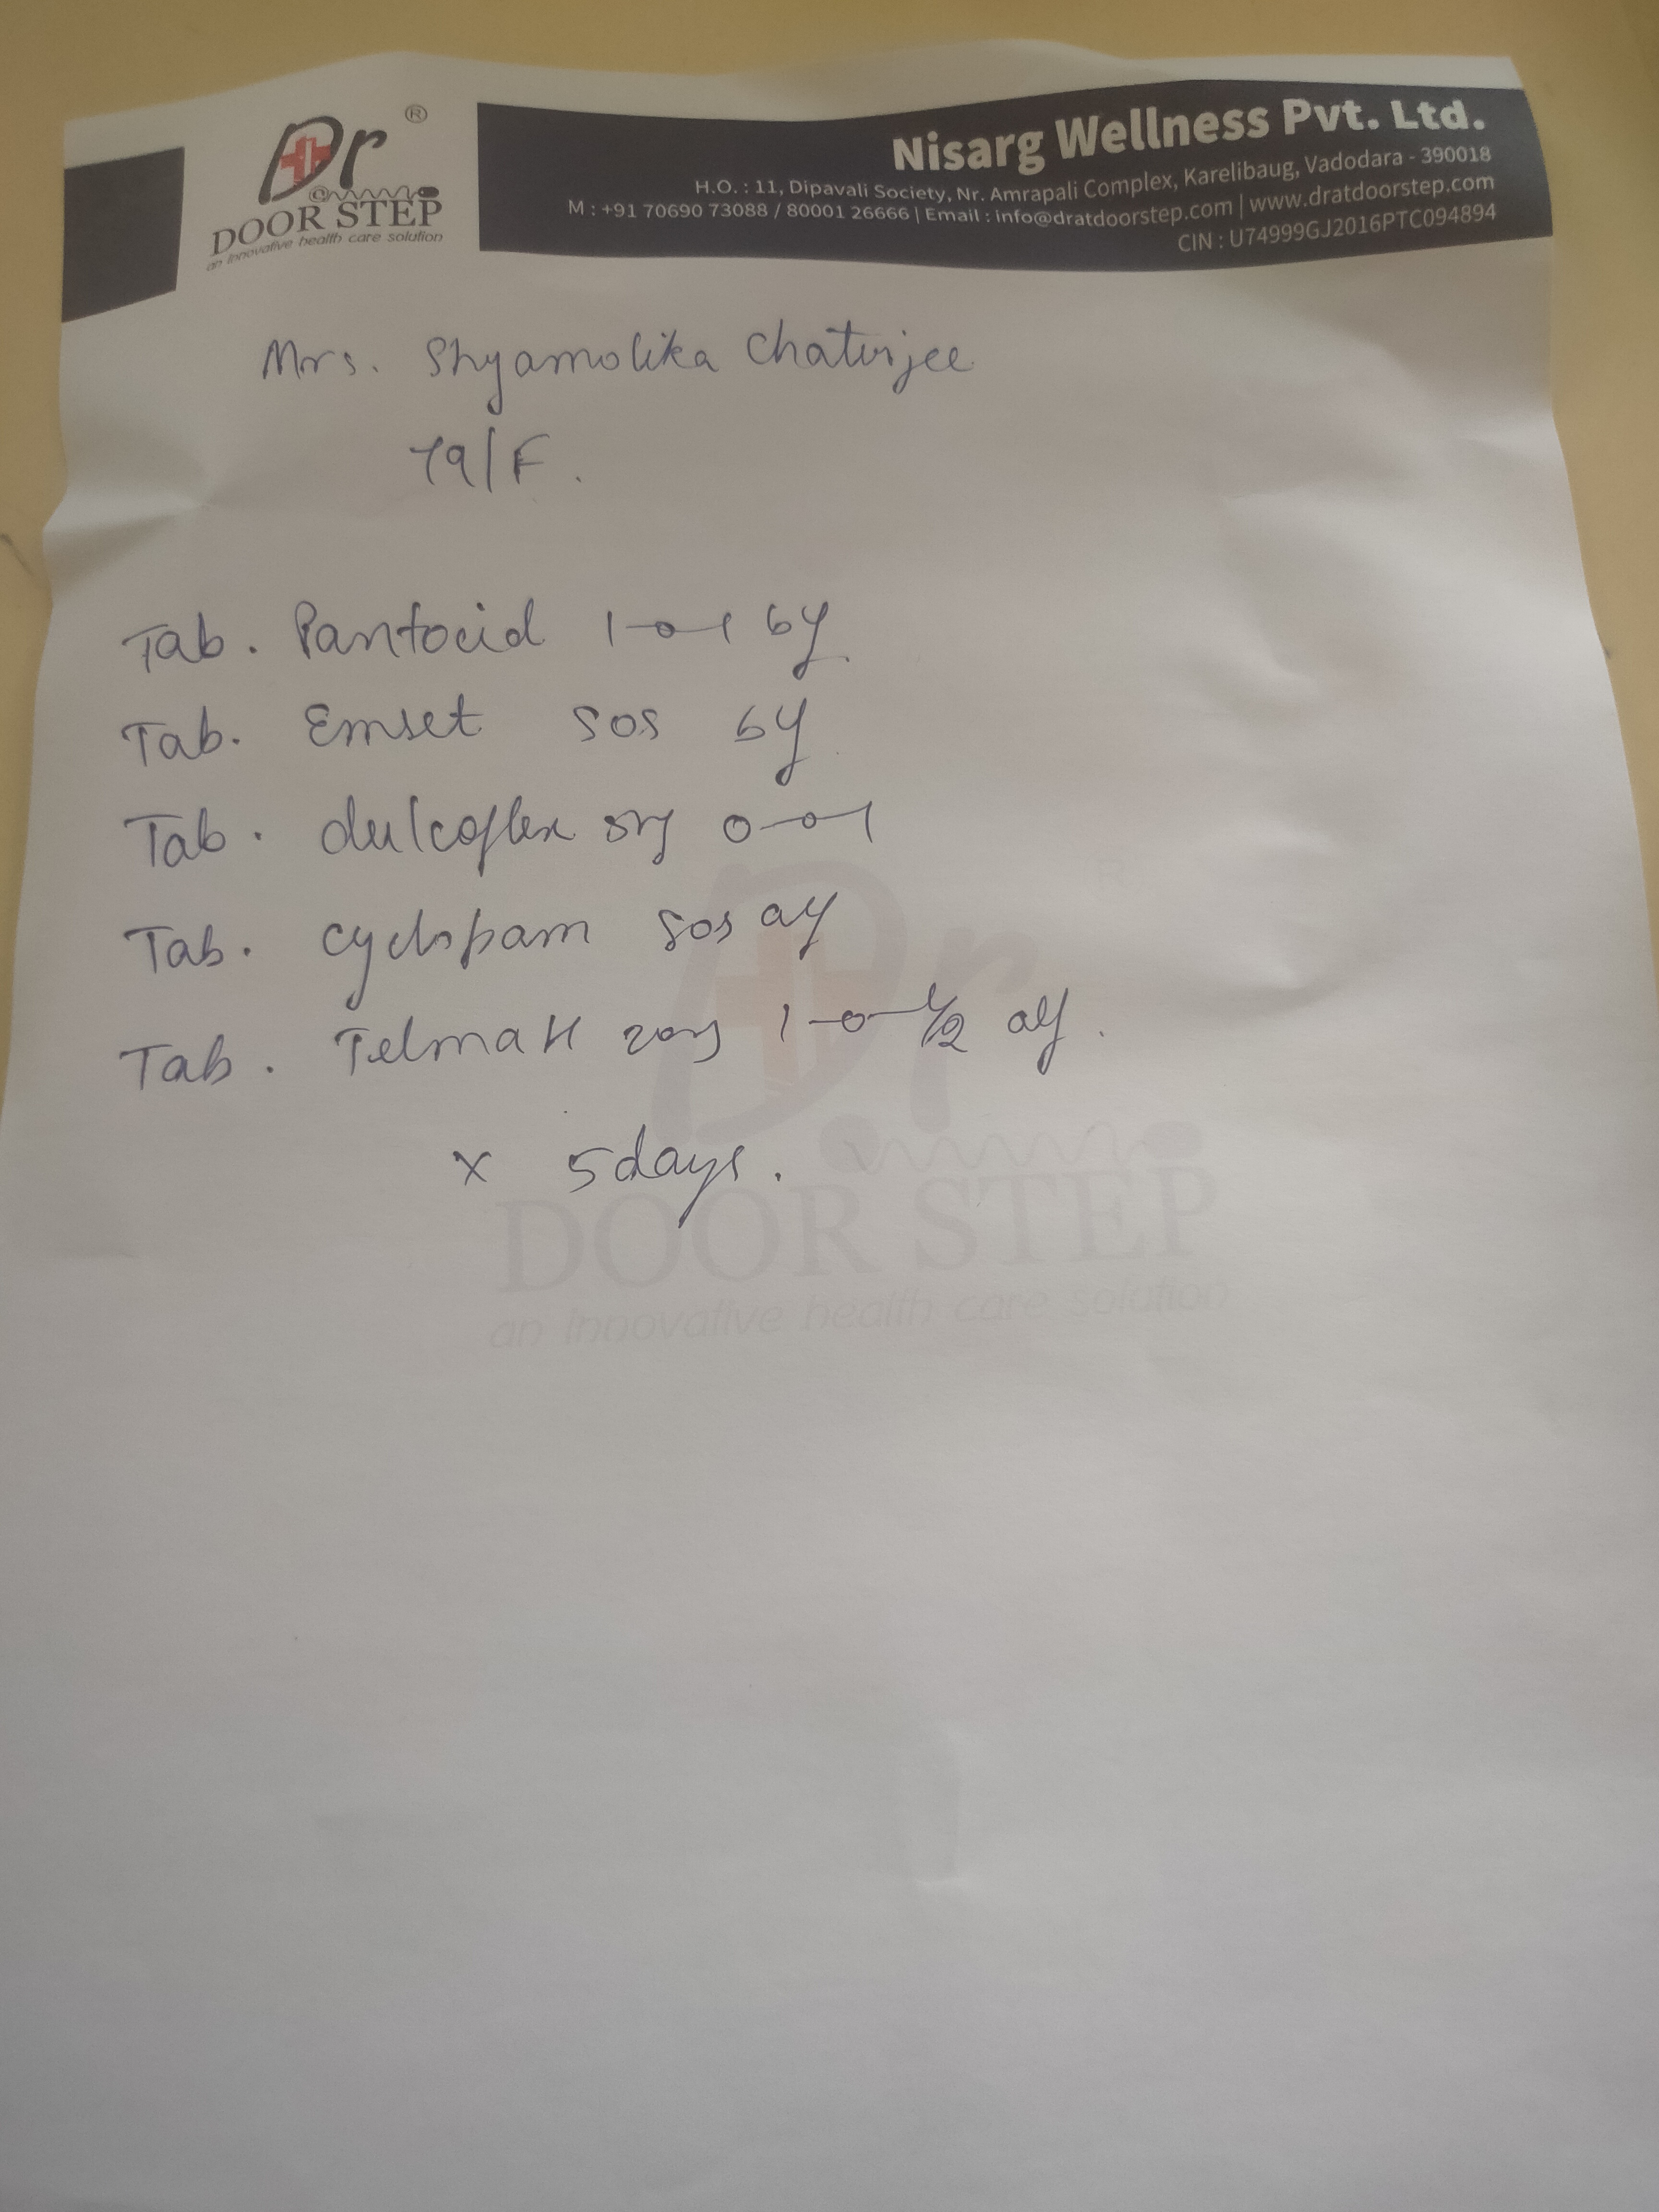 Dr ®
DOOR STEP
an innovative health care solution
Nisarg Wellness Pvt. Ltd.
H.O. : 11, Dipavali Society, Nr. Amrapali Complex, Karelibaug, Vadodara - 390018
M : +91 70690 73088 / 80001 26666 | Email : info@dratdoorstep.com | www.dratdoorstep.com
CIN : U74999GJ2016PTC094894
Mrs. Shyamolika Chaterjee
79/F.
Tab. Pantocid 1-0-1 bf
Tab. Emset sos bf
Tab. dulcoflex 5mg 0-0-1
Tab. cyclopam sos af
Tab. Telma H 20mg 1-0-1/2 af.
x 5 days.
Dr
DOOR STEP
an innovative health care solution